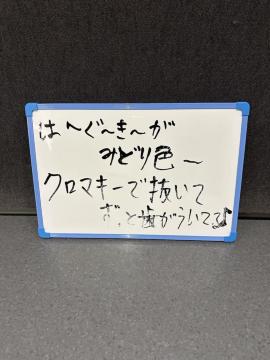 は〜ぐ〜き〜が
みどり色〜
クロマキーで抜いて
ざっと歯がういてて♪